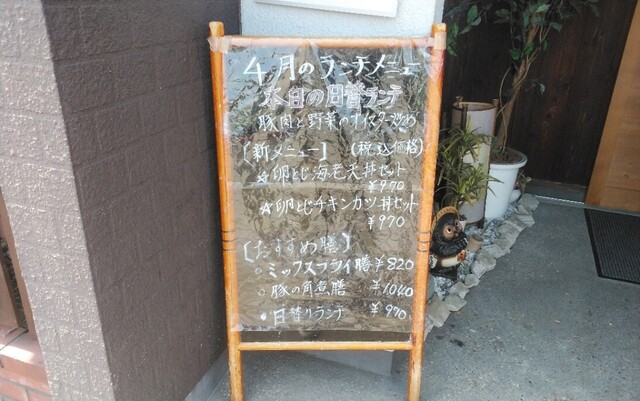 4月のランチメニュー
本日の日替ランチ
豚肉と野菜のオイスター炒め
[新メニュー] (税込価格)
☆卵とじ海老天丼セット
¥970
☆卵とじチキンカツ丼セット
¥970
[おすすめ膳]
○ミックスフライ膳 ¥820
○豚の角煮膳 ¥1,040
○日替りランチ ¥970